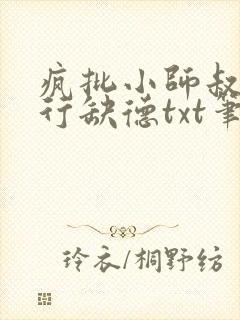 疯批小師叔
行缺德txt筆
玲衣/桐野纺